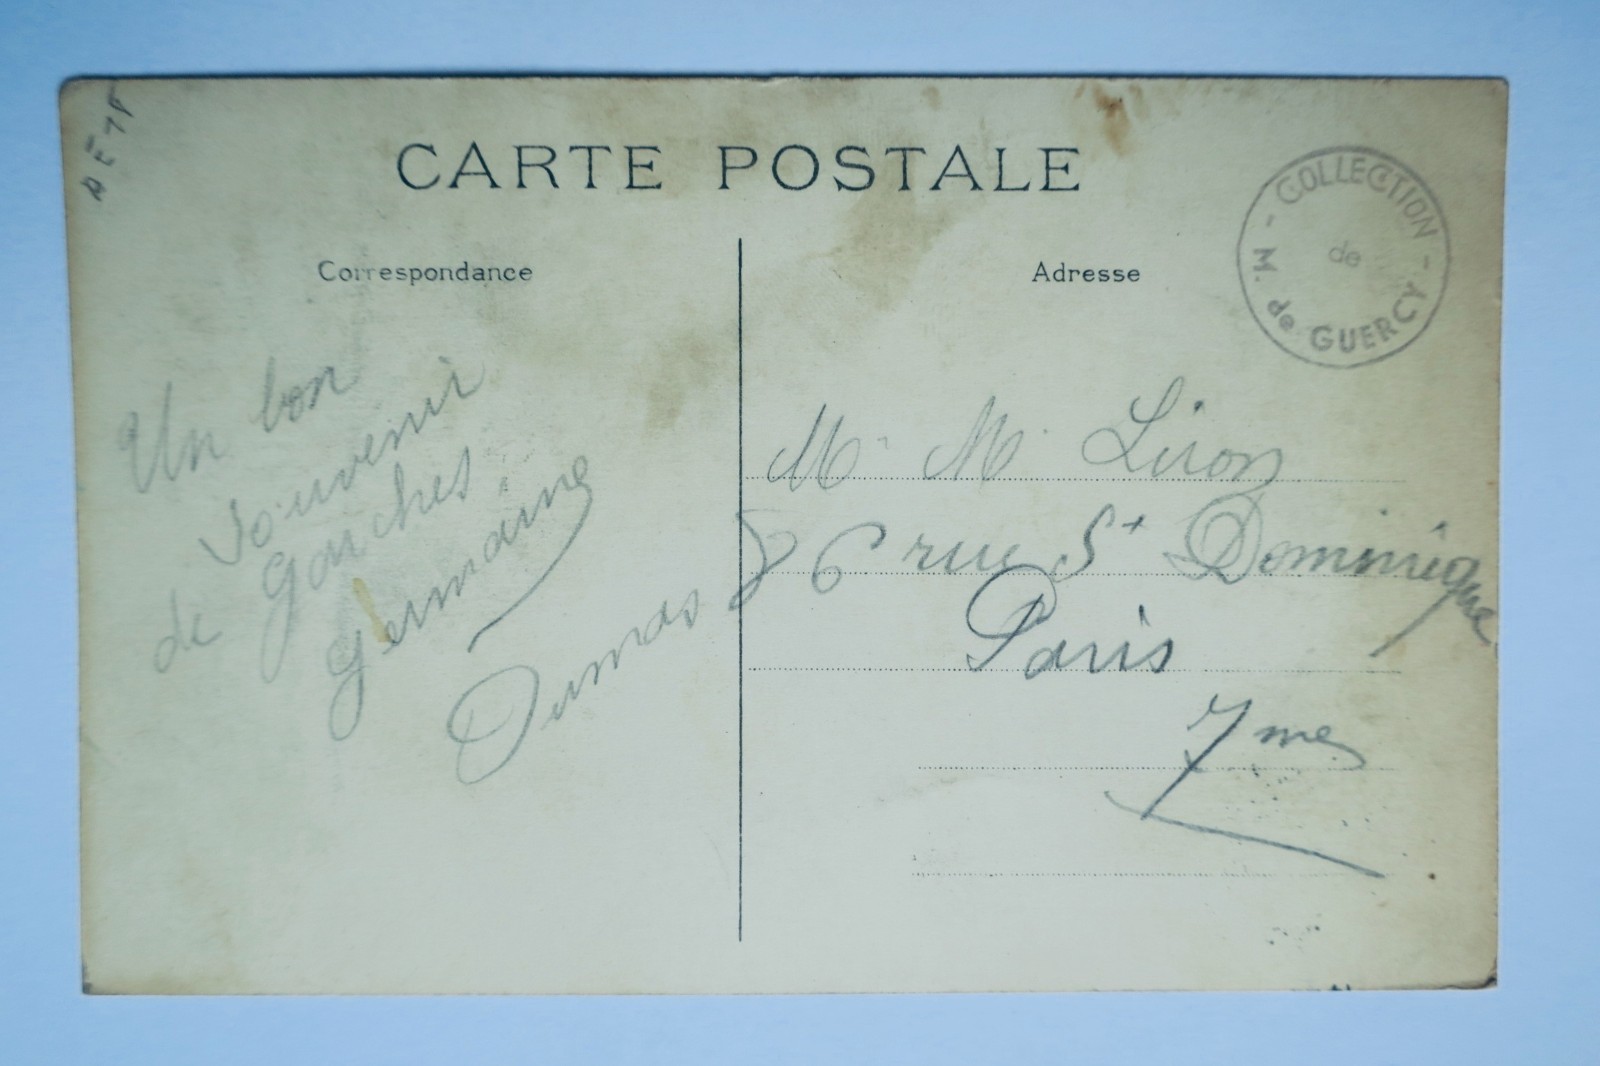 CARTE POSTALE
Correspondance
Adresse
COLLECTION
de
M. de GUERCY
Un bon
souvenir
de
Garches.
Germaine
Dumas
Mr M. Liron
86 rue St Dominique
Paris
7me